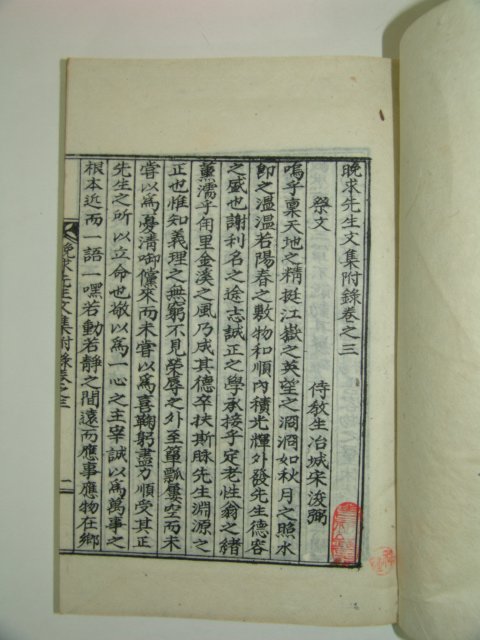 晚求先生文集附錄卷之三
祭文
侍敎生冶城宋浚弼
嗚乎稟天地之精挺江嶽之英望之洞洞如秋月之照水
卽之溫溫若陽春之敷物和順內積光輝外發先生德容
之盛也謝利名之途志誠正之學承接乎定老性翁之緖
薰濡乎甪里金溪之風乃成其德卒扶斯脉先生淵源之
正也惟知義理之無窮不見榮辱之外至簞瓢屢空而未
嘗以爲憂淸啣儻來而未嘗以爲喜鞠躬盡力順受其正
先生之所以立命也敬以爲一心之主宰誠以爲萬事之
根本近而一語一嘿若動若靜之間遠而應事應物在鄕
晚求先生文集附錄卷之三
一